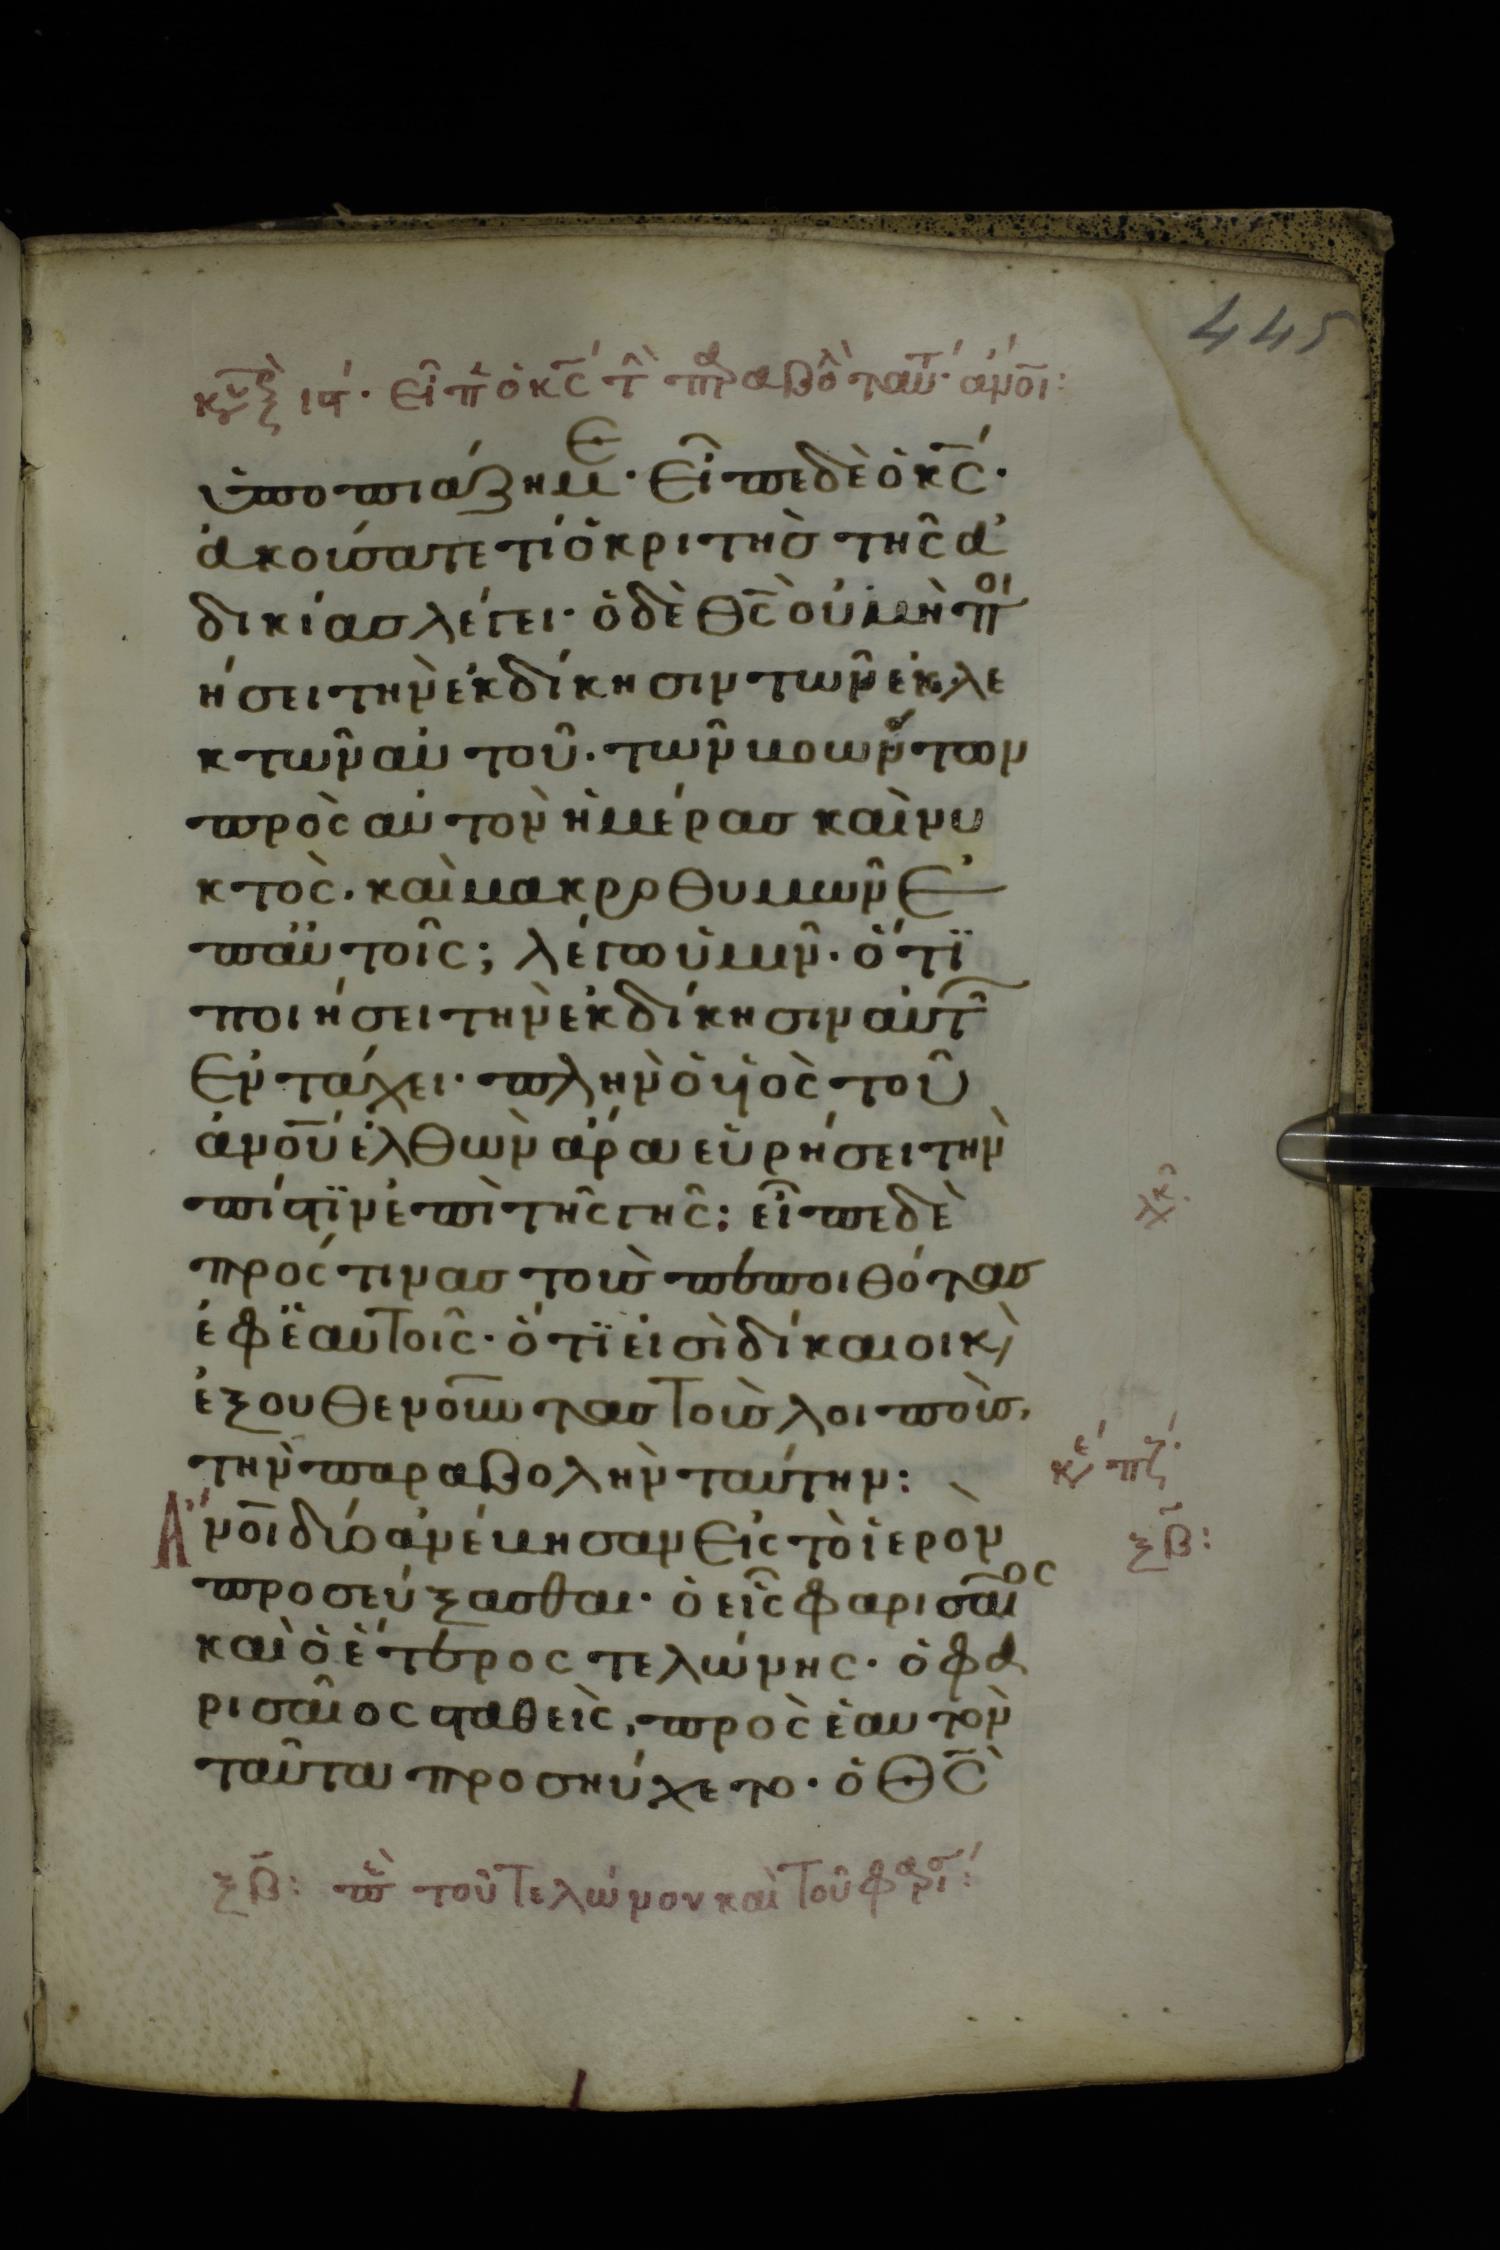 445
κυ ις· εἶπ ὁ κς τ παραβο ταύτ· ἄνοι:
ὑποπιάζη με· εἶπε δὲ ὁ κς·
ἀκούσατε τί ὁ κριτὴσ τῆς ἀ
δικίασ λέγει· ὁ δὲ θς οὐ μὴ ποι
ήσει τὴν ἐκδίκησιν τῶν ἐκλε
κτῶν αὐτοῦ· τῶν βοώντων
πρὸς αὐτὸν ἡμέρασ καὶ νυ
κτὸς· καὶ μακροθυμῶν ἐ
π᾽αὐτοῖς; λέγω ὑμῖν· ὅτϊ
ποιήσει τὴν ἐκδίκησιν αὐτ
ἐν τάχει· πλὴν ὁ υἱὸς τοῦ
ἀνου ἐλθὼν ἄρα εὑρήσει τὴν
πίστϊν ἐπὶ τῆς γῆς: εἶπε δὲ
πρός τινασ τοὺσ πεποιθότασ
ἐφ᾽ἑαυτοῖς· ὅτϊ εἰσὶ δίκαιοι κ
ἐξουθενοῦντασ τοὺσ λοιποὺσ,
τὴν παραβολὴν ταύτην:
κε πζ
Ἄνοι δύο ἀνέβησαν εἰς τὸ ἱερὸν
ξβ:
προσεύξασθαι· ὁ εἷς φαρισαῖος
καὶ ὁ ἕτερος τελώνης· ὁ φα
ρισαῖος σταθεὶς, πρὸς ἑαυτὸν
ταῦτα προσηύχετο· ὁ θς
ξβ: πε τοῦ τελώνου καὶ τοῦ φαρισ: